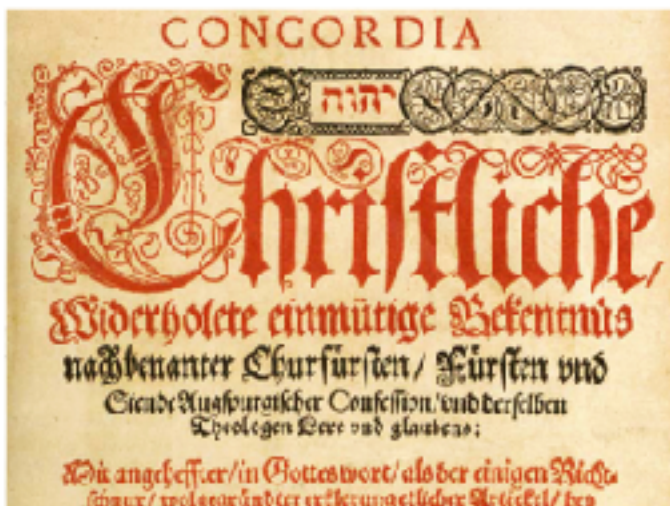 CONCORDIA
יהוה
Christliche,
Widerholete einmütige Bekentnüs
nachbenanter Churfürsten/ Fürsten vnd
Stende Augspurgischer Confession/ vnd derselben
Theologen Lere vnd glaubens:
Mit angeheffter/ in Gottes wort/ als der einigen Richt-
schnur/ wolgegründter erklerung etlicher Artickel/ bey